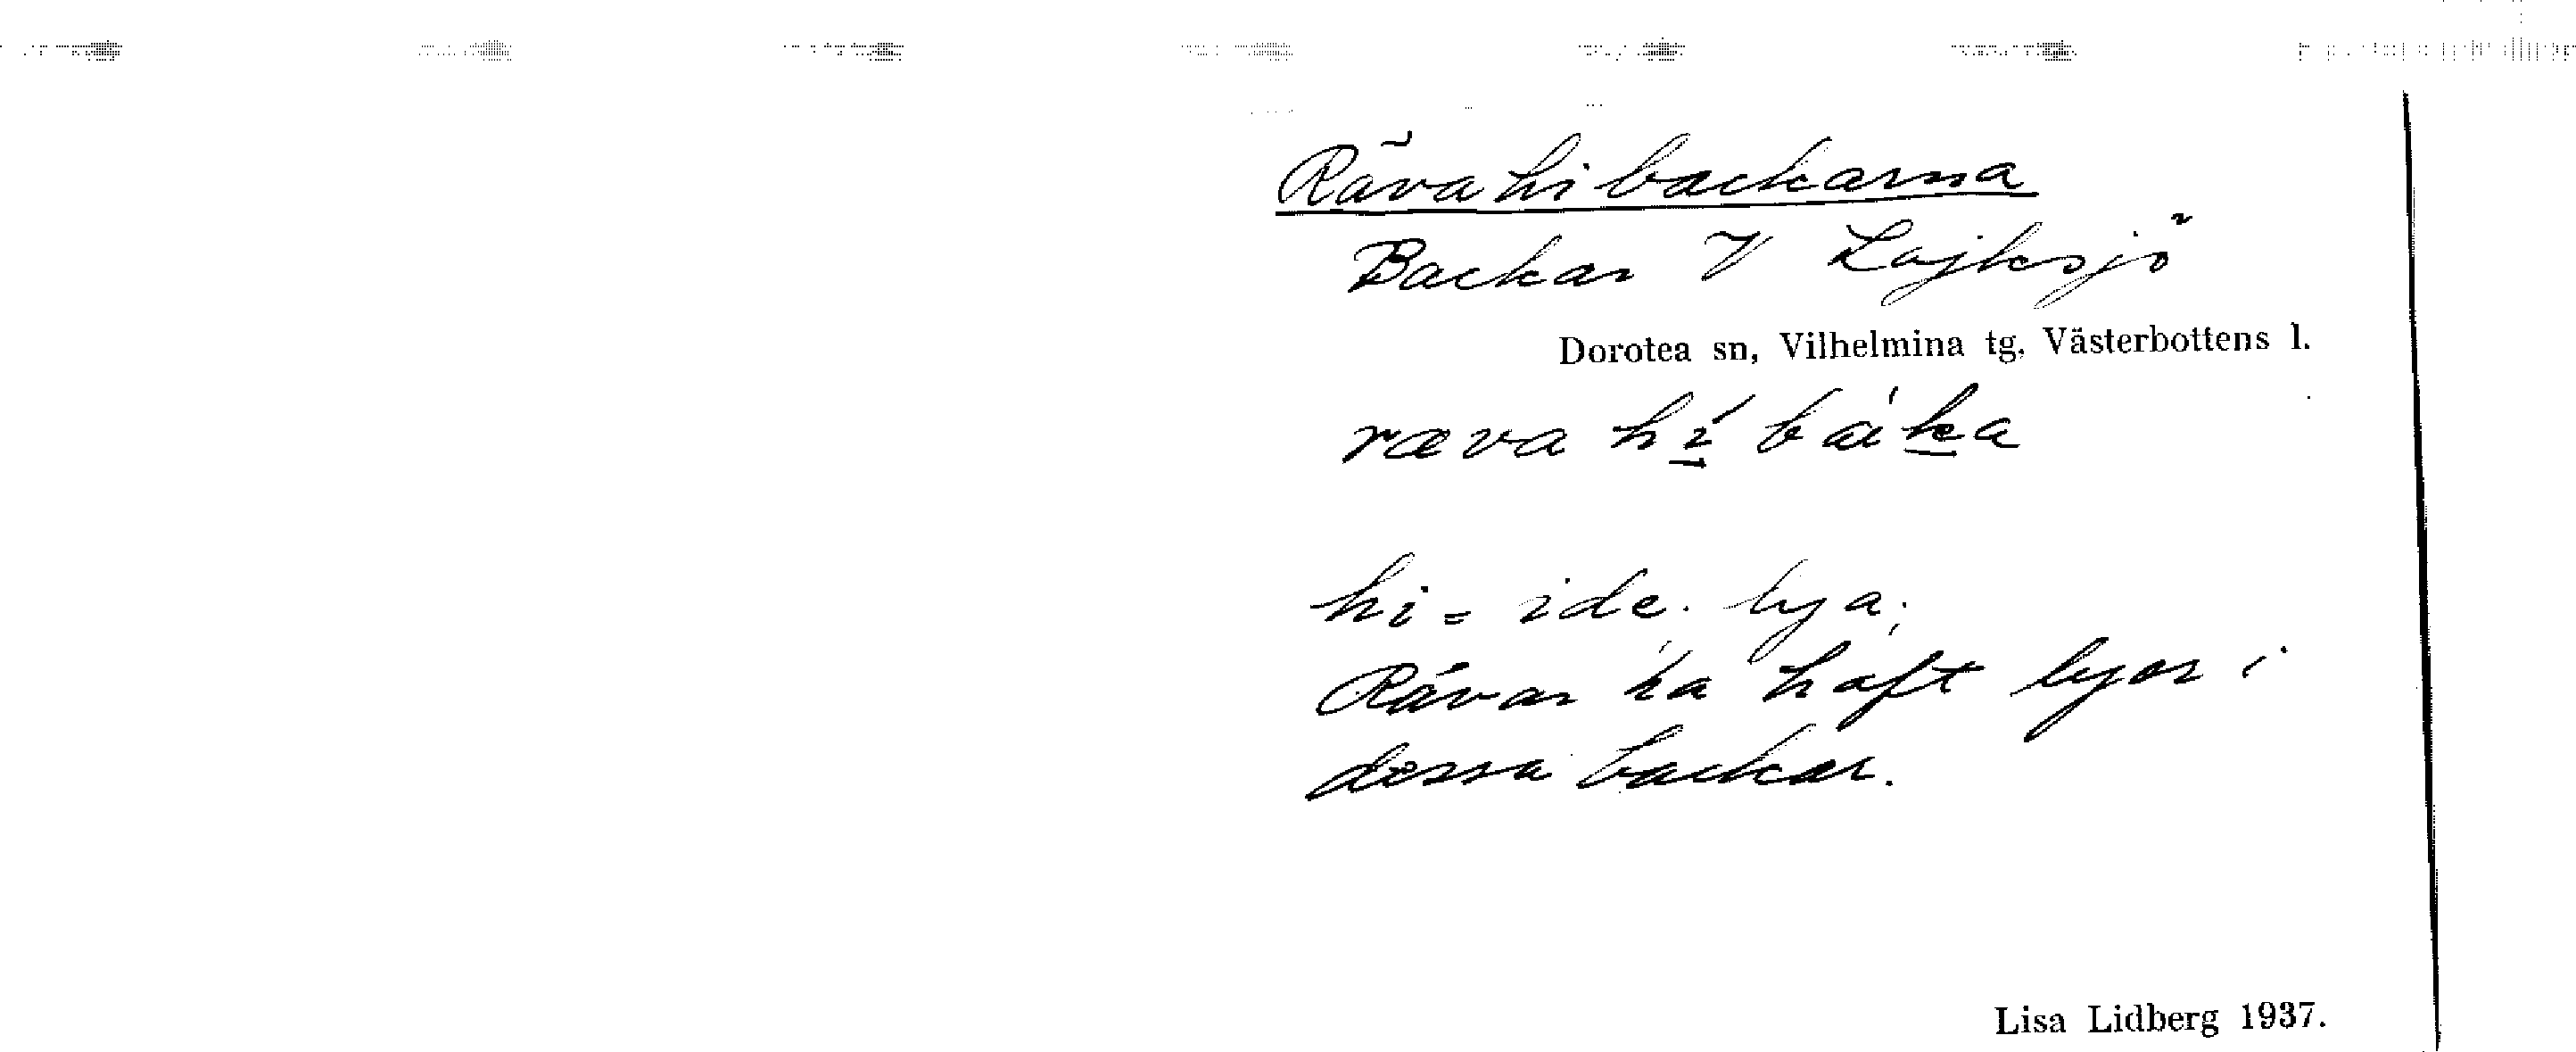 Rävahibackarna
Backar V Lajksjö
Dorotea sn, Vilhelmina tg, Västerbottens l.
hi = ide. lya.
Rävar ha haft lyor i
dessa backar.
Lisa Lidberg 1937.